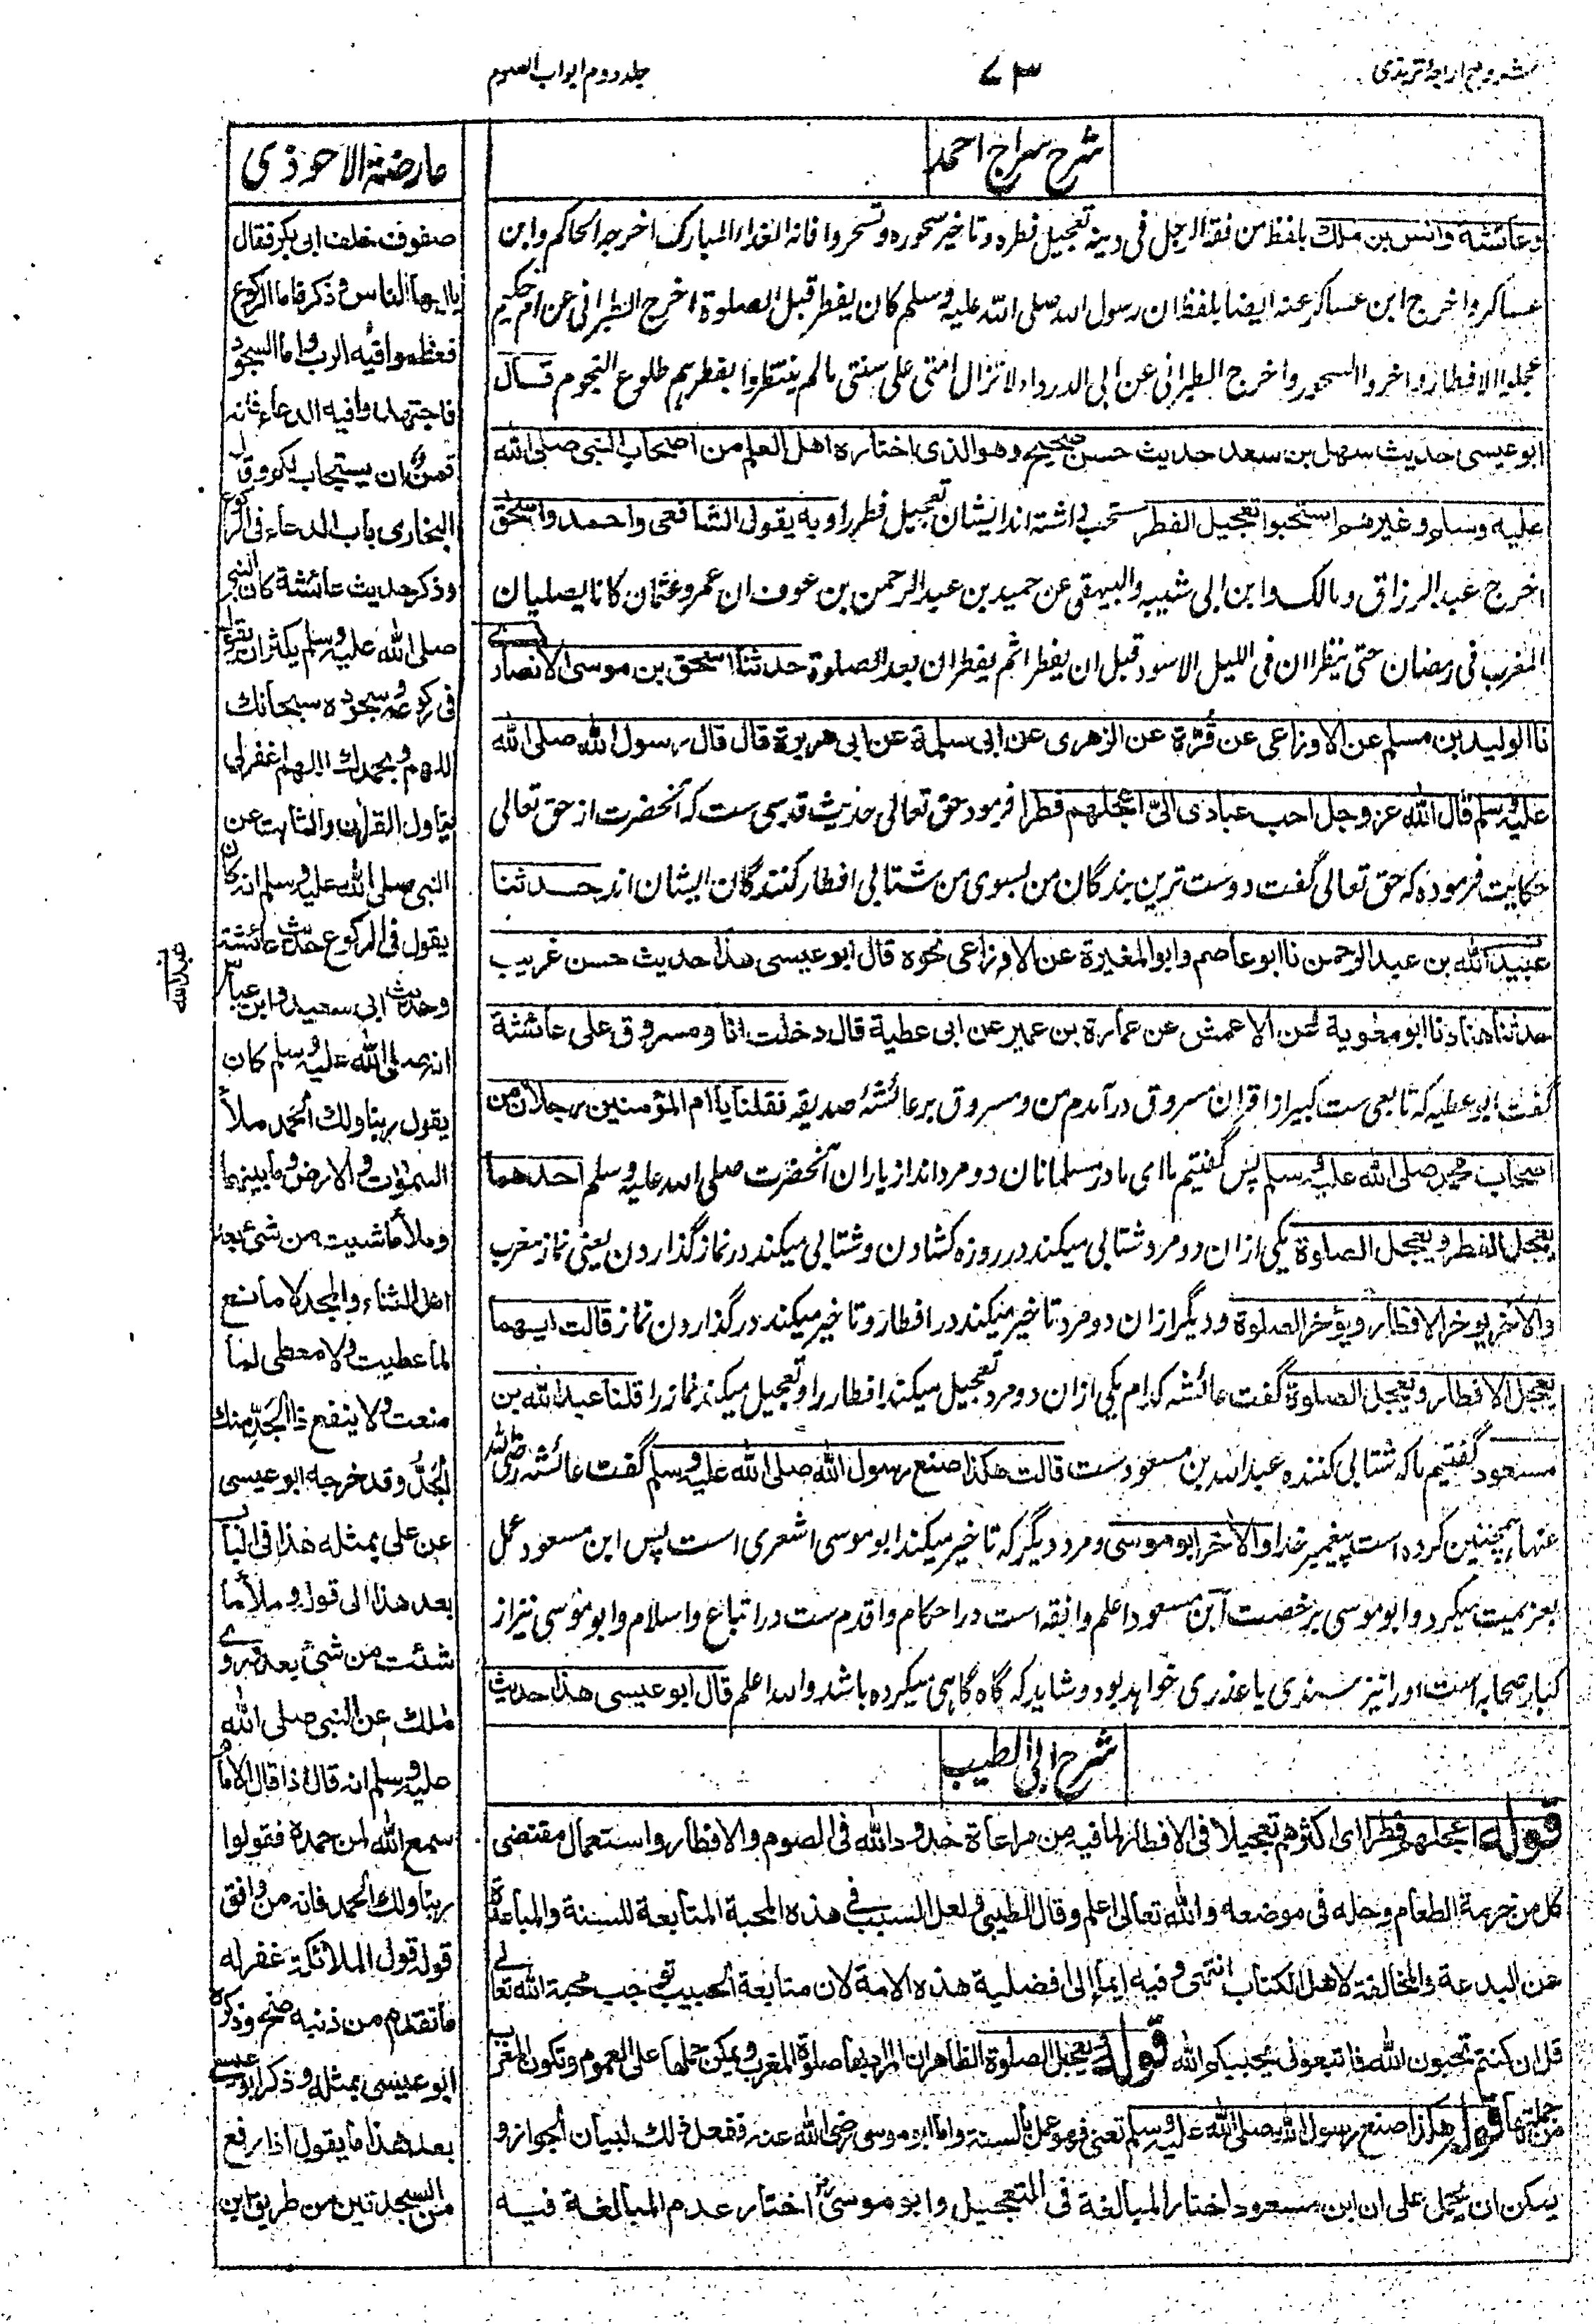 شروح اربعهٔ ترمذی
۷۳
جلد دوم ابواب الصوم
شرح سراج احمد
وعائشة وانس بن ملك بلفظ من فقه الرجل فی دینه تعجیل فطره وتاخیر سحوره وتسحروا فانه الغداء المبارك اخرجه الحاکم وابن
عساکر واخرج ابن عساکر عنه ایضا بلفظ ان رسول الله صلی الله علیه وسلم کان یفطر قبل الصلوة اخرج الطبرانی عن ام حکیم
عجلوا الافطار واخروا السحور واخرج الطبرانی عن ابی الدرداء لا تزال امتی علی سنتی ما لم ینتظروا بفطرهم طلوع النجوم قال
ابو عیسی حدیث سهل بن سعد حدیث حسن صحیح وهو الذی اختاره اهل العلم من اصحاب النبی صلی الله
علیه وسلم وغیرهم استحبوا تعجیل الفطر مستحب داشته اند ایشان تعجیل فطر را وبه یقول الشافعی واحمد واسحق
اخرج عبد الرزاق ومالک وابن ابی شیبه والبیهقی عن حمید بن عبد الرحمن بن عوف ان عمر وعثمان کانا یصلیان
المغرب فی رمضان حتی ینظران فی اللیل الاسود قبل ان یفطرا ثم یفطران بعد الصلوة حدثنا اسحق بن موسی الانصاری
نا الولید بن مسلم عن الاوزاعی عن قُرّة عن الزهری عن ابی سلمة عن ابی هریرة قال قال رسول الله صلی الله
علیه وسلم قال الله عز وجل احب عبادی الیّ اعجلهم فطرا فرمود حق تعالی حدیث قدسی ست که آنحضرت از حق تعالی
حکایت فرموده که حق تعالی گفت دوست ترین بندگان من بسوی من شتابی افطار کنندگان ایشان اند حدثنا
عبید الله بن عبد الرحمن نا ابو عاصم وابو المغیرة عن الاوزاعی نحوه قال ابو عیسی هذا حدیث حسن غریب
حدثنا هناد نا ابو معویة عن الاعمش عن عمارة بن عمیر عن ابی عطیة قال دخلت انا ومسروق علی عائشة
گفت ابو عطیه که تابعی ست کبیر از اقران مسروق درآمدم من ومسروق بر عائشهٔ صدیقه فقلنا یا ام المؤمنین رجلان من
اصحاب محمد صلی الله علیه وسلم پس گفتیم ما ای مادر مسلمانان دو مرد اند از یاران آنحضرت صلی الله علیه وسلم احدهما
یعجل الفطر ویعجل الصلوة یکی ازان دو مرد شتابی میکند در روزه کشادن وشتابی میکند در نماز گذاردن یعنی نماز مغرب
والآخر یوخر الافطار ویؤخر الصلوة ودیگر ازان دو مرد تاخیر میکند در افطار وتاخیر میکند در گذاردن نماز قالت ایهما
یعجل الافطار ویعجل الصلوة گفت عائشه کدام یکی ازان دو مرد تعجیل میکند افطار را وتعجیل میکند نماز را قلنا عبد الله بن
مسعود گفتیم ما که شتابی کننده عبد الله بن مسعود ست قالت هکذا صنع رسول الله صلی الله علیه وسلم گفت عائشه رضی الله
عنها همچنین کرده است پیغمبر خدا والآخر ابو موسی ومرد دیگر که تاخیر میکند ابو موسی اشعری است پس ابن مسعود عمل
بعزیمت میکرد وابو موسی برخصت ابن مسعود اعلم وافقه است در احکام واقدم ست در اتباع واسلام وابو موسی نیز از
کبار صحابه است او را نیز سندی یا عذری خواهد بود وشاید که گاه گاهی میکرده باشد والله اعلم قال ابو عیسی هذا حدیث
شرح ابی الطیب
قوله اعجلهم فطرا ای اکثرهم تعجیلا فی الافطار لما فیه من مراعاة حدود الله فی الصوم والافطار واستعمال مقتضی
کل من حرمة الطعام وحله فی موضعه والله تعالی اعلم وقال الطیبی ولعل السبب فی هذه المحبة المتابعة للسنة والمباعدة
عن البدعة والمخالفة لاهل الکتاب انتهی وفیه ایماء الی افضلیة هذه الامة لان متابعة الحبیب توجب محبة الله تعالی
قل ان کنتم تحبون الله فاتبعونی یحببکم الله قوله یعجل الصلوة الظاهر ان المراد بها صلوة المغرب ویمکن حملها علی العموم وتکون المغرب
من جملتها قوله هکذا صنع رسول الله صلی الله علیه وسلم تعنی فهو عمل بالسنة واما ابو موسی رضی الله عنه ففعل ذلك لبیان الجواز و
یمکن ان یحمل علی ان ابن مسعود اختار المبالغة فی التعجیل وابو موسی اختار عدم المبالغة فیه
عارضة الاحوذی
صفوف خلف ابی بکر فقال
یا ایها الناس وذکر فاما الرکوع
فعظموا فیه الرب واما السجود
فاجتهدوا فیه الدعاء فانه
قمن ان یستجاب لکم وقال
البخاری باب الدعاء فی الرکوع
وذکر حدیث عائشة کان النبی
صلی الله علیه وسلم یکثر ان یقول
فی رکوعه وسجوده سبحانك
اللهم وبحمدك اللهم اغفر لی
یتاول القرآن والثابت عن
النبی صلی الله علیه وسلم انه کان
یقول فی الرکوع حدیث عائشة
وحدیث ابی سعید وابن عباس
انه صلی الله علیه وسلم کان
یقول ربنا ولك الحمد ملأ
السموات والارض وما بینهما
وملأ ما شیت من شئ بعد
اهل الثناء والمجد لا مانع
لما عطیت ولا معطی لما
منعت ولا ینفع ذا الجَدّ منك
الجَدُّ وقد خرجه ابو عیسی
عن علی بمثله هذا فی الباب
بعد هذا الی قوله وملأ ما
شئت من شئ بعد وروی
ملك عن النبی صلی الله
علیه وسلم انه قال اذا قال الامام
سمع الله لمن حمده فقولوا
ربنا ولك الحمد فانه من وافق
قوله قول الملائکة غفر له
ما تقدم من ذنبه صح وذکره
ابو عیسی بمثله وذکر ابو عیسی
بعد هذا ما یقول اذا رفع
من السجدتین من طریق ابن
عبد الله